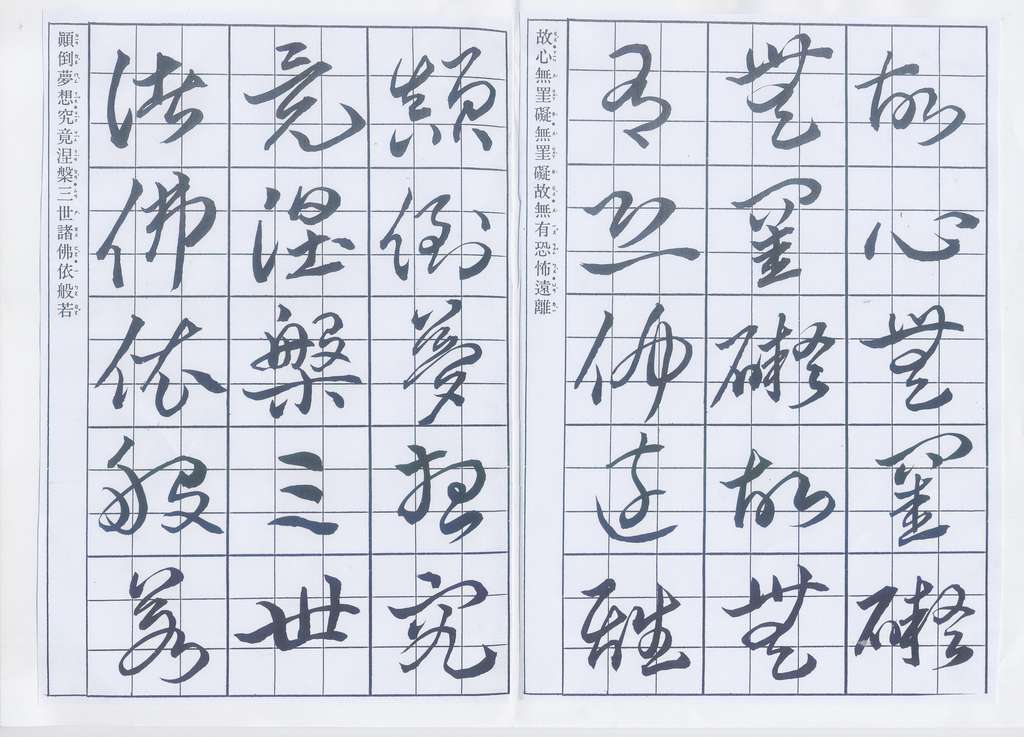 故心無罣礙
無罣礙故無
有恐怖遠離
故心無罣礙無罣礙故無有恐怖遠離
顛倒夢想究
竟涅槃三世
諸佛依般若
顛倒夢想究竟涅槃三世諸佛依般若